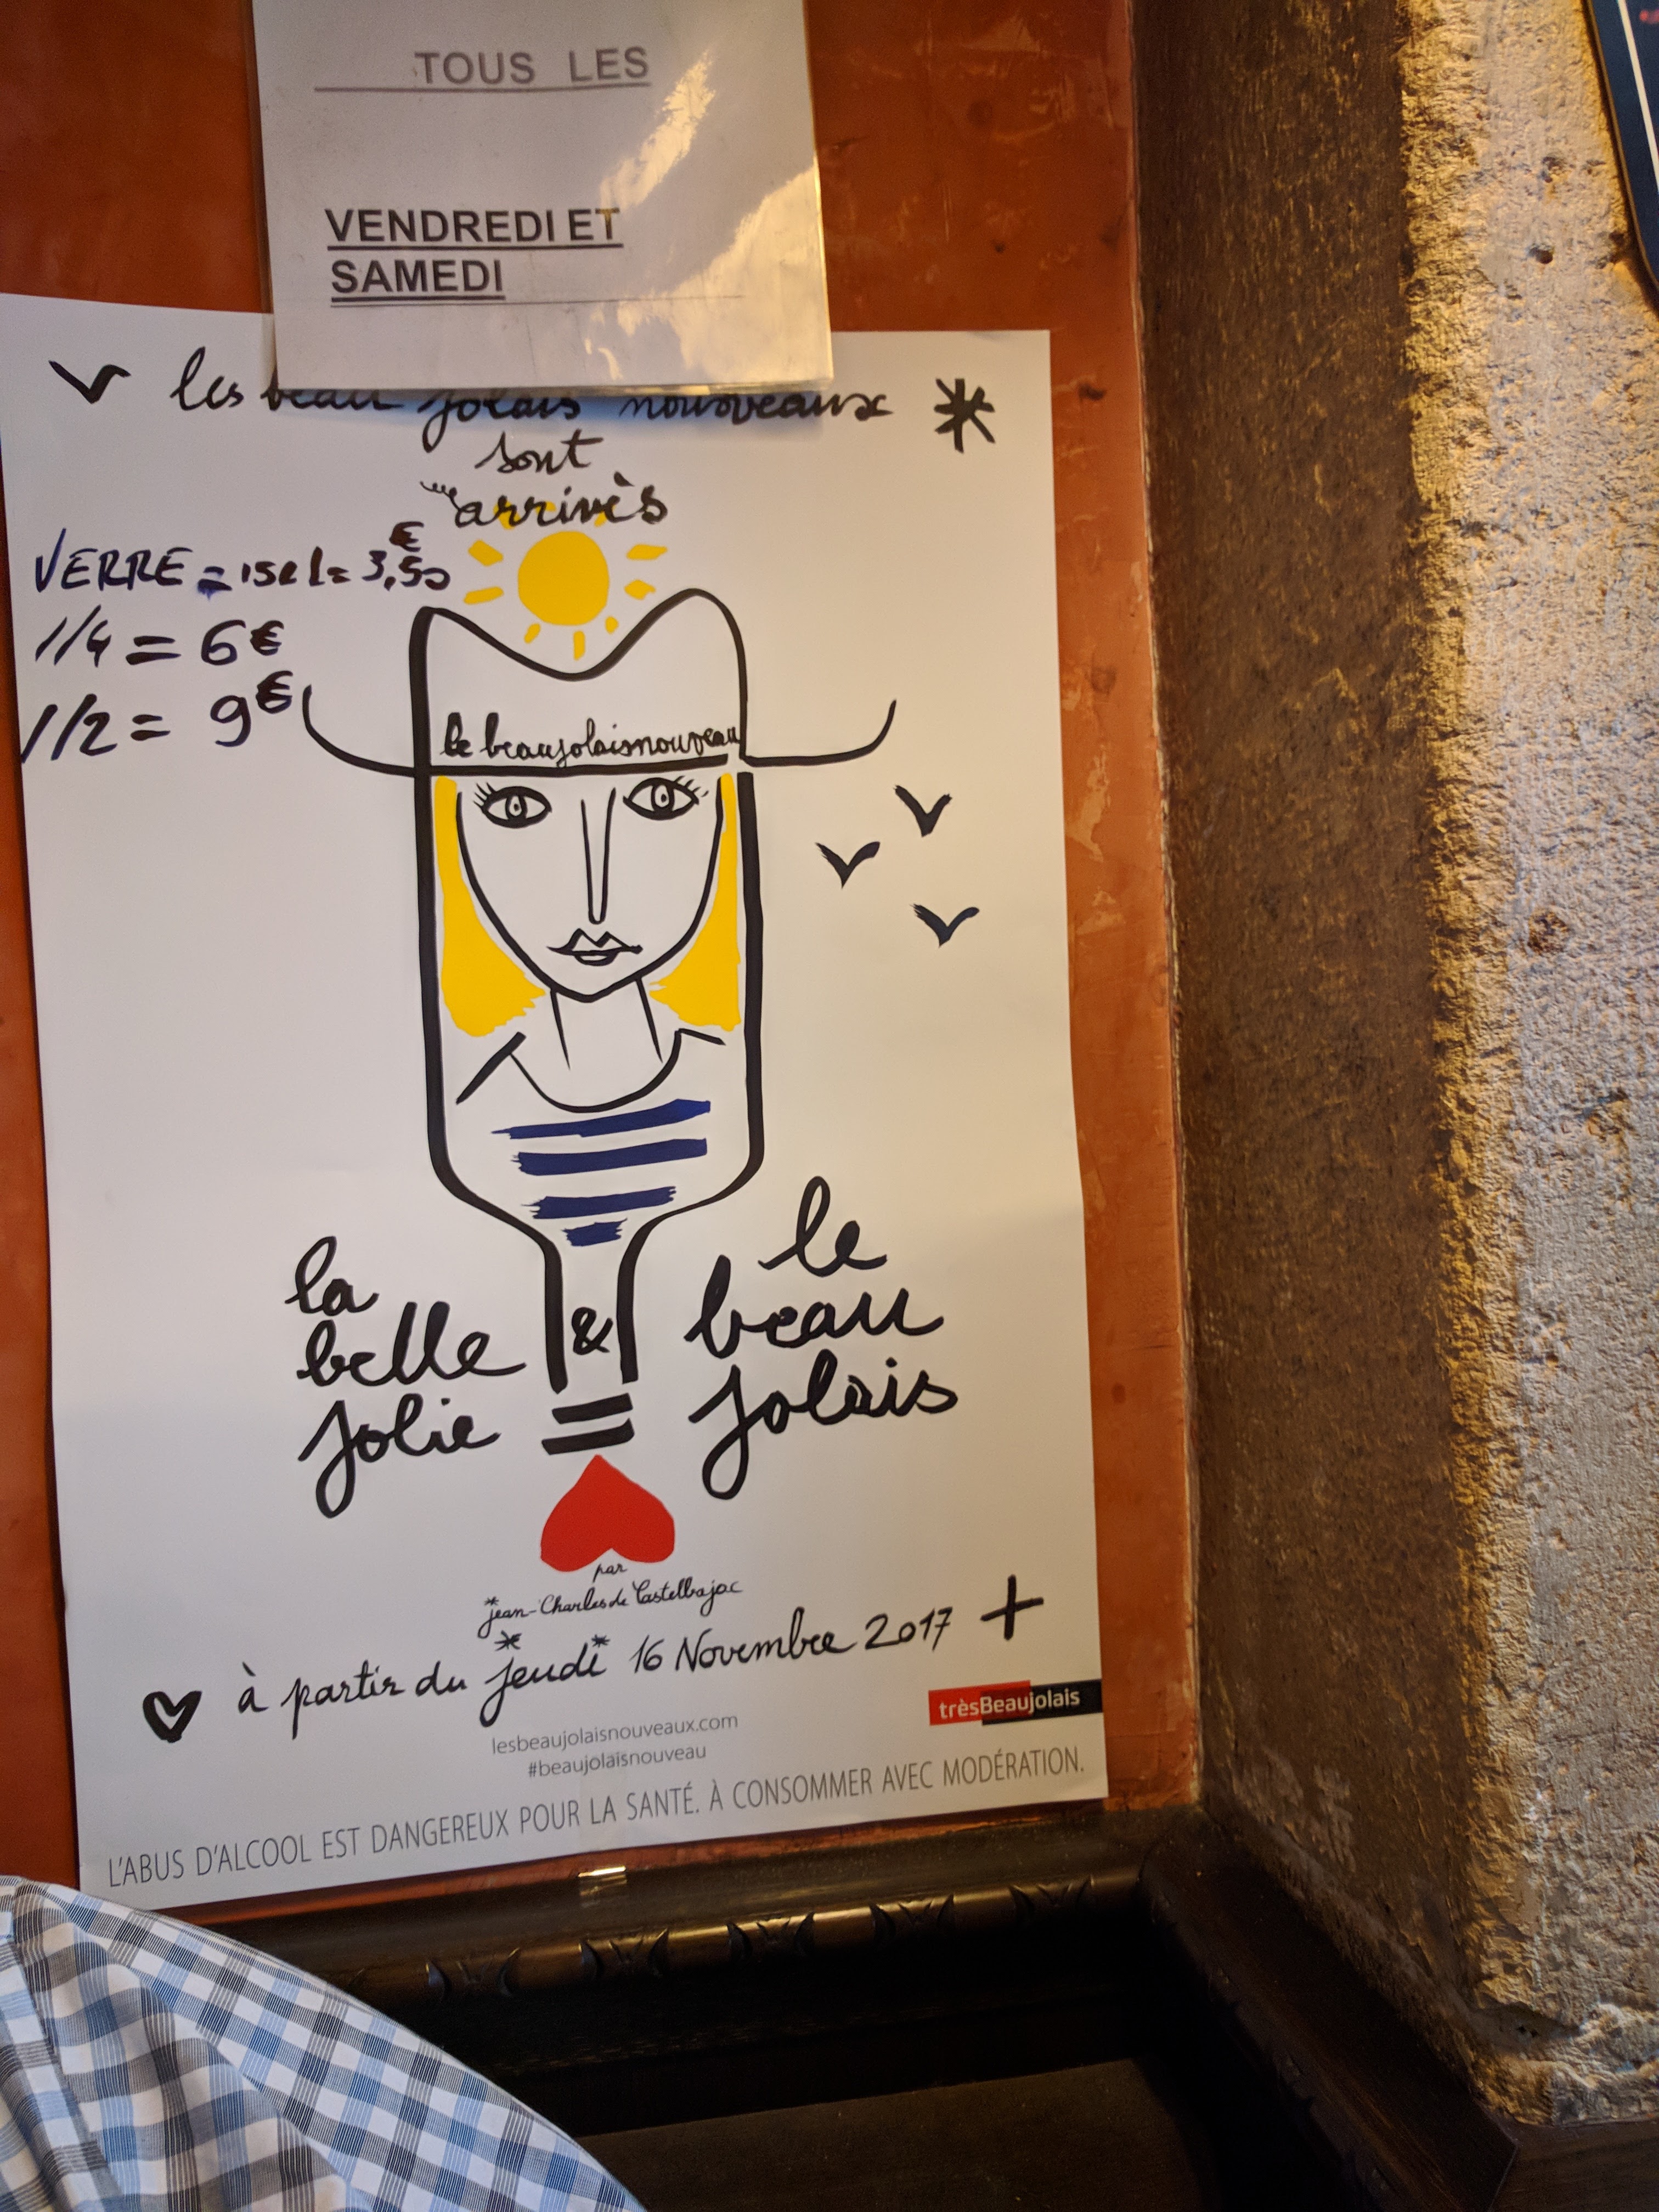 TOUS LES
VENDREDI ET
SAMEDI
les beau jolais nouveaux
sont
arrivès
VERRE = 15cl = 3,50€
1/4 = 6€
1/2 = 9€
le beaujolaisnouveau
la
belle
jolie
&
le
beau
jolais
=
par
jean-Charles de Castelbajac
à partir du jeudi 16 Novembre 2017 +
trèsBeaujolais
lesbeaujolaisnouveaux.com
#beaujolaisnouveau
L'ABUS D'ALCOOL EST DANGEREUX POUR LA SANTÉ. À CONSOMMER AVEC MODÉRATION.